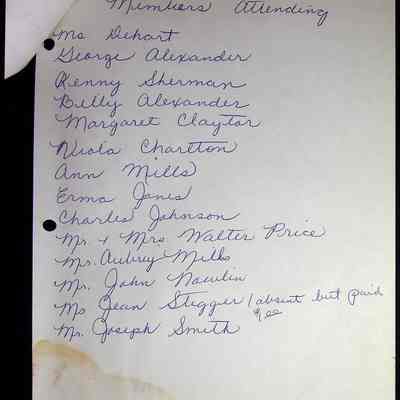 Members Attending
Ms Dehart
George Alexander
Kenny Sherman
Billy Alexander
Margaret Claytor
Viola Charlton
Ann Mills
Erma Jones
Charles Johnson
Mr. & Mrs. Walter Price
Mr. Aubrey Mills
Mr. John Nowlin
Ms Jean Stegger / absent but paid
fee
Mr. Joseph Smith